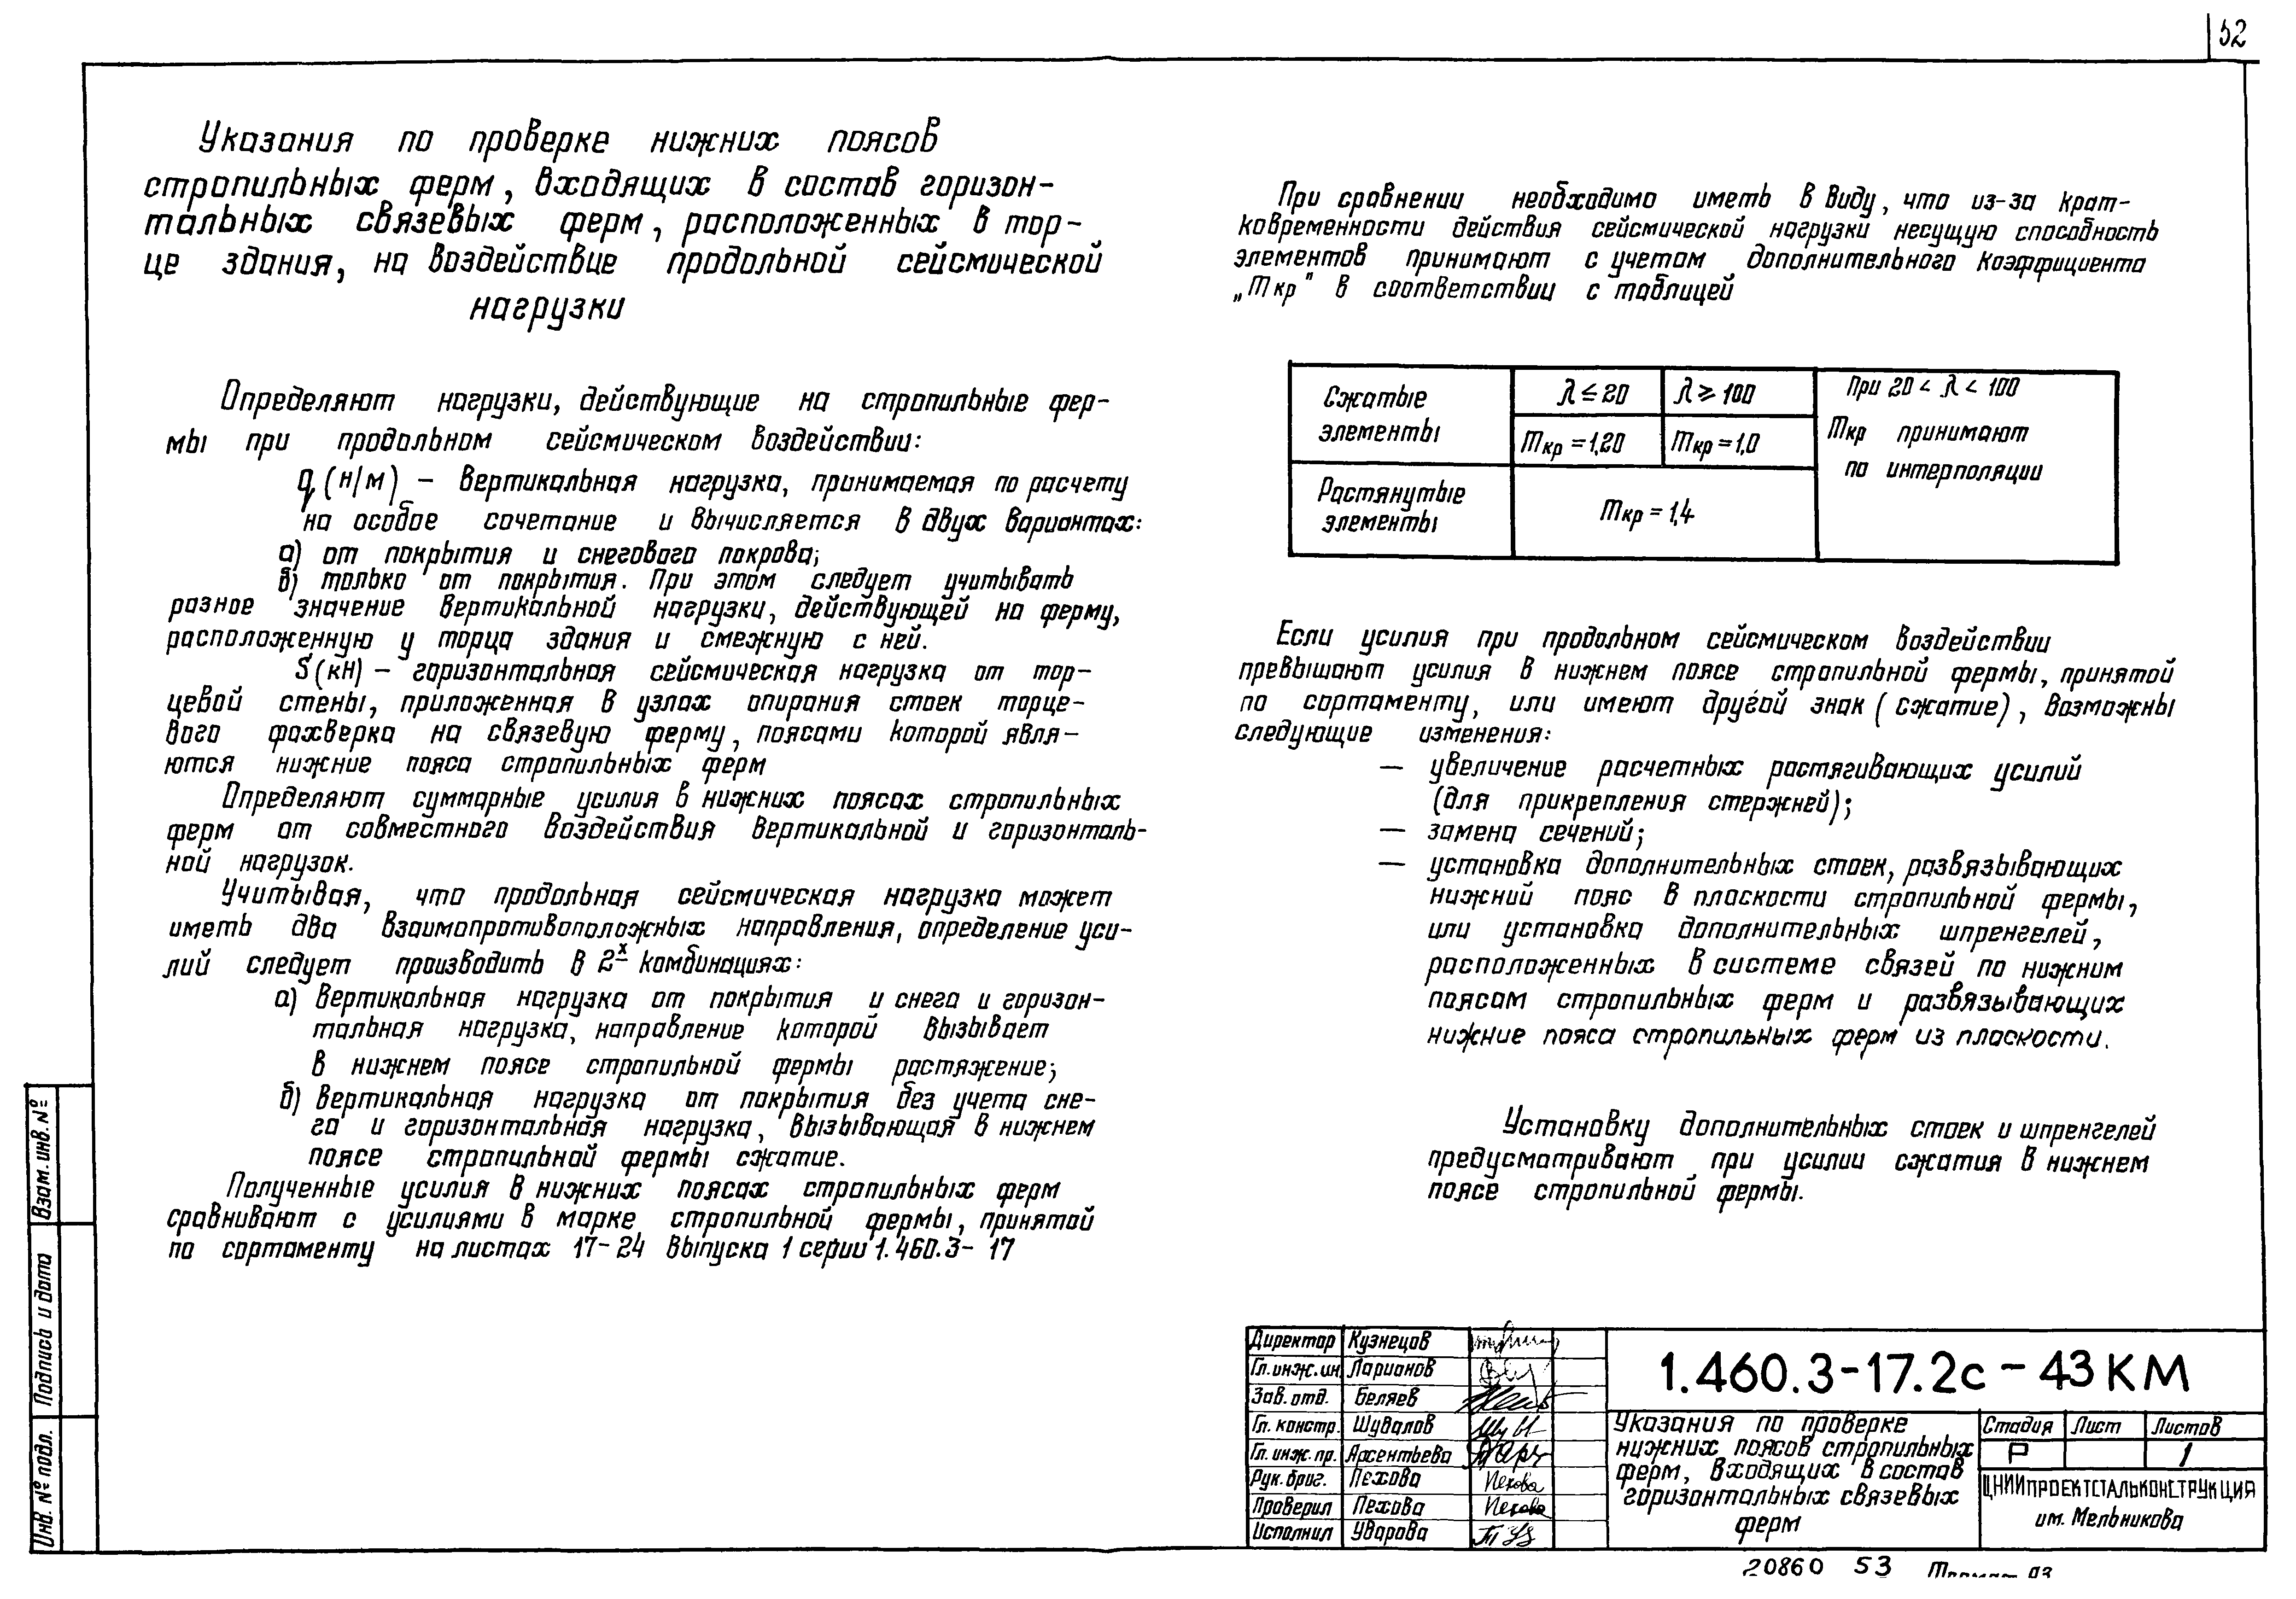 52
Указания по проверке нижних поясов
стропильных ферм, входящих в состав горизон-
тальных связевых ферм, расположенных в тор-
це здания, на воздействие продольной сейсмической
нагрузки
Определяют нагрузки, действующие на стропильные фер-
мы при продольном сейсмическом воздействии:
q (н/м) – вертикальная нагрузка, принимаемая по расчету
на особое сочетание и вычисляется в двух вариантах:
а) от покрытия и снегового покрова;
б) только от покрытия. При этом следует учитывать
разное значение вертикальной нагрузки, действующей на ферму,
расположенную у торца здания и смежную с ней.
S (кн) – горизонтальная сейсмическая нагрузка от тор-
цевой стены, приложенная в узлах опирания стоек торце-
вого фахверка на связевую ферму, поясами которой явля-
ются нижние пояса стропильных ферм
Определяют суммарные усилия в нижних поясах стропильных
ферм от совместного воздействия вертикальной и горизонталь-
ной нагрузок.
Учитывая, что продольная сейсмическая нагрузка может
иметь два взаимопротивоположных направления, определение уси-
лий следует производить в 2х комбинациях:
а) вертикальная нагрузка от покрытия и снега и горизон-
тальная нагрузка, направление которой вызывает
в нижнем поясе стропильной фермы растяжение;
б) вертикальная нагрузка от покрытия без учета сне-
га и горизонтальная нагрузка, вызывающая в нижнем
поясе стропильной фермы сжатие.
Полученные усилия в нижних поясах стропильных ферм
сравнивают с усилиями в марке стропильной фермы, принятой
по сортаменту на листах 17-24 выпуска 1 серии 1.460.3-17
При сравнении необходимо иметь в виду, что из-за крат-
ковременности действия сейсмической нагрузки несущую способность
элементов принимают с учетом дополнительного коэффициента
„mкр" в соответствии с таблицей
Сжатые элементы
λ ≤ 20
λ ⩾ 100
При 20 < λ < 100
mкр принимают
по интерполяции
mкр = 1,20
mкр = 1,0
Растянутые элементы
mкр = 1,4
Если усилия при продольном сейсмическом воздействии
превышают усилия в нижнем поясе стропильной фермы, принятой
по сортаменту, или имеют другой знак (сжатие), возможны
следующие изменения:
— увеличение расчетных растягивающих усилий
(для прикрепления стержней);
— замена сечений;
— установка дополнительных стоек, развязывающих
нижний пояс в плоскости стропильной фермы,
или установка дополнительных шпренгелей,
расположенных в системе связей по нижним
поясам стропильных ферм и развязывающих
нижние пояса стропильных ферм из плоскости.
Установку дополнительных стоек и шпренгелей
предусматривают при усилии сжатия в нижнем
поясе стропильной фермы.
Взам. инв. №
Подпись и дата
Инв. № подл.
Директор Кузнецов
Гл. инж. ин. Ларионов
Зав. отд. Беляев
Гл. констр. Шувалов
Гл. инж. пр. Арсентьева
Рук. бриг. Пехова Пехова
Проверил Пехова Пехова
Исполнил Уварова
1.460.3-17.2с - 43 КМ
Указания по проверке
нижних поясов стропильных
ферм, входящих в состав
горизонтальных связевых
ферм
Стадия Лист Листов
Р 1
ЦНИИПРОЕКТСТАЛЬКОНСТРУКЦИЯ
им. Мельникова
20860 53